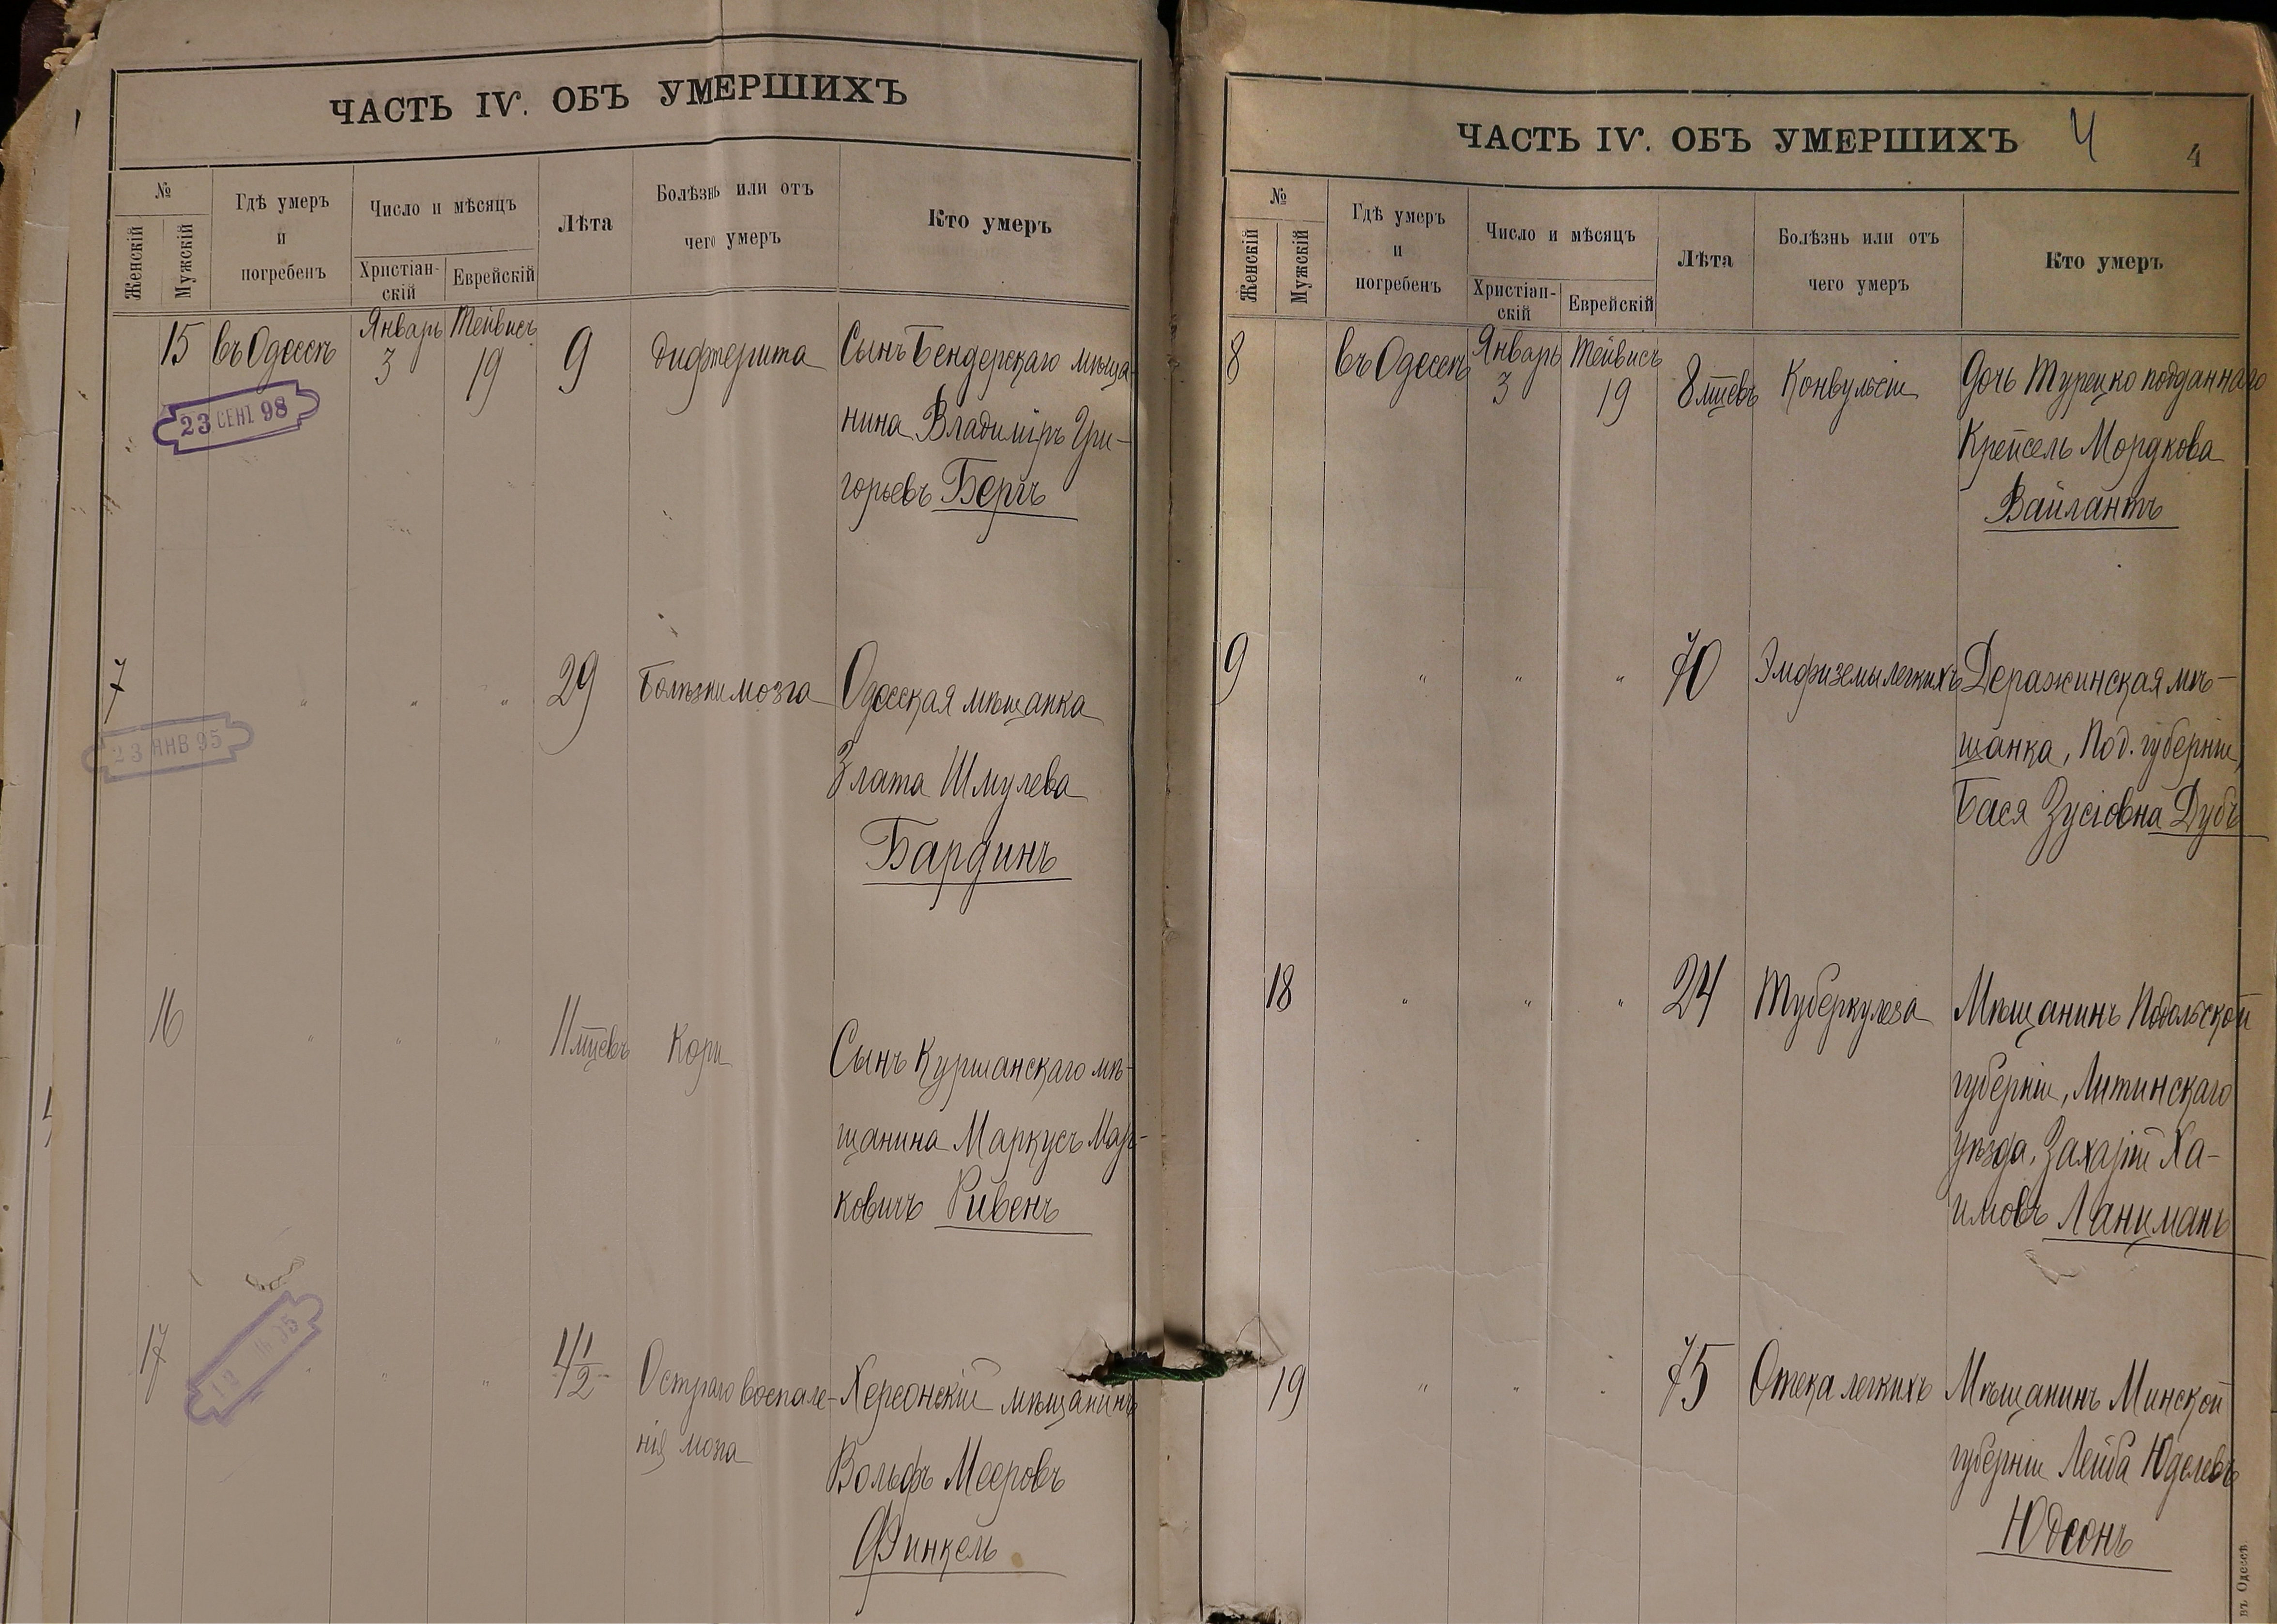 ЧАСТЬ IV. ОБЪ УМЕРШИХЪ
№
Женскій
Мужскій
Гдѣ умеръ
и
погребенъ
Число и мѣсяцъ
Христіан-
скій
Еврейскій
Лѣта
Болѣзнь или отъ
чего умеръ
Кто умеръ
15 въ Одессѣ Январь 3 Тейвисъ 19 9 дифтерита Сынъ Бендерскаго мѣща-
нина Владиміръ Гри-
горьевъ Бергъ
23 СЕНТ 98
7 " " " 29 Болѣзни мозга Одесская мѣщанка
Злата Шмулева
Бардинъ
23 ЯНВ 95
16 " " " 11 мцевъ Кори Сынъ Куршанскаго мѣ-
щанина Маркусъ Мар-
ковичъ Ривенъ
17 " " " 4 1/2 Остраго воспале- Херсонскій мѣщанинъ
нія мозга Вольфъ Мееровъ
Финкель
ЧАСТЬ IV. ОБЪ УМЕРШИХЪ
4
4
№
Женскій
Мужскій
Гдѣ умеръ
и
погребенъ
Число и мѣсяцъ
Христіан-
скій
Еврейскій
Лѣта
Болѣзнь или отъ
чего умеръ
Кто умеръ
8 въ Одессѣ Январь 3 Тейвисъ 19 8 мцевъ Конвульсіи Дочь Турецко подданнаго
Крейсель Мордкова
Вайлантъ
9 " " " 70 Эмфиземы легкихъ Деражинская мѣ-
щанка, Под. губерніи,
Бася Зусіовна Дубъ
18 " " " 24 Туберкулеза Мѣщанинъ Подольской
губерніи, Литинскаго
уѣзда, Захарій Ха-
имовъ Ланцманъ
19 " " " 75 Отека легкихъ Мѣщанинъ Минской
губерніи Лейба Юделевъ
Юдсонъ
въ Одессѣ